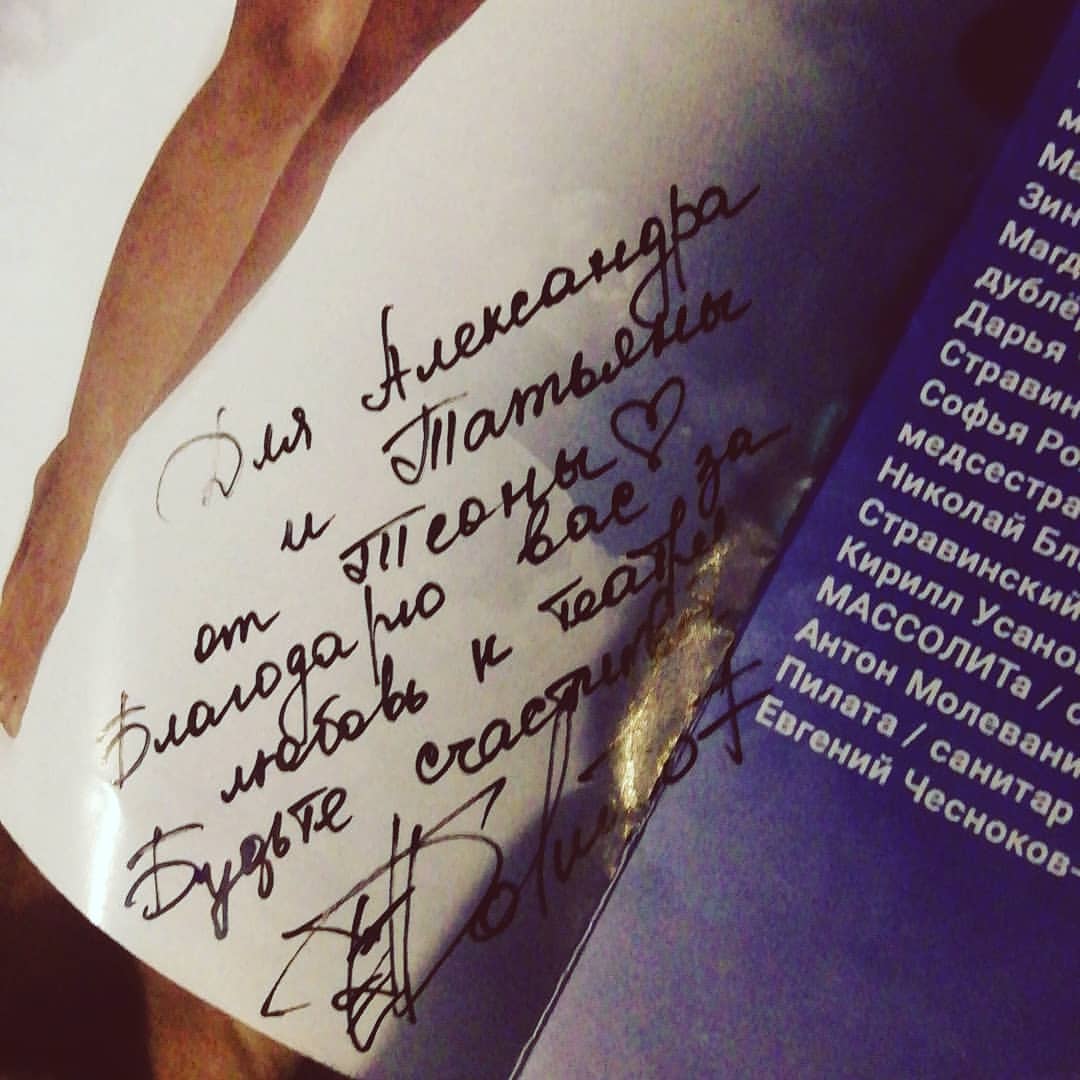 Для Александра
и Татьяны
от Теоны♡
Благодарю вас за
любовь к театру!
Будьте счастливы
м
Ма
Зин
Магд
дублё
Дарья
Стравин
Софья Ро
медсестра
Николай Бл
Стравинский
Кирилл Усано
МАССОЛИТа / с
Антон Молевани
Пилата / санитар
Евгений Чесноков-